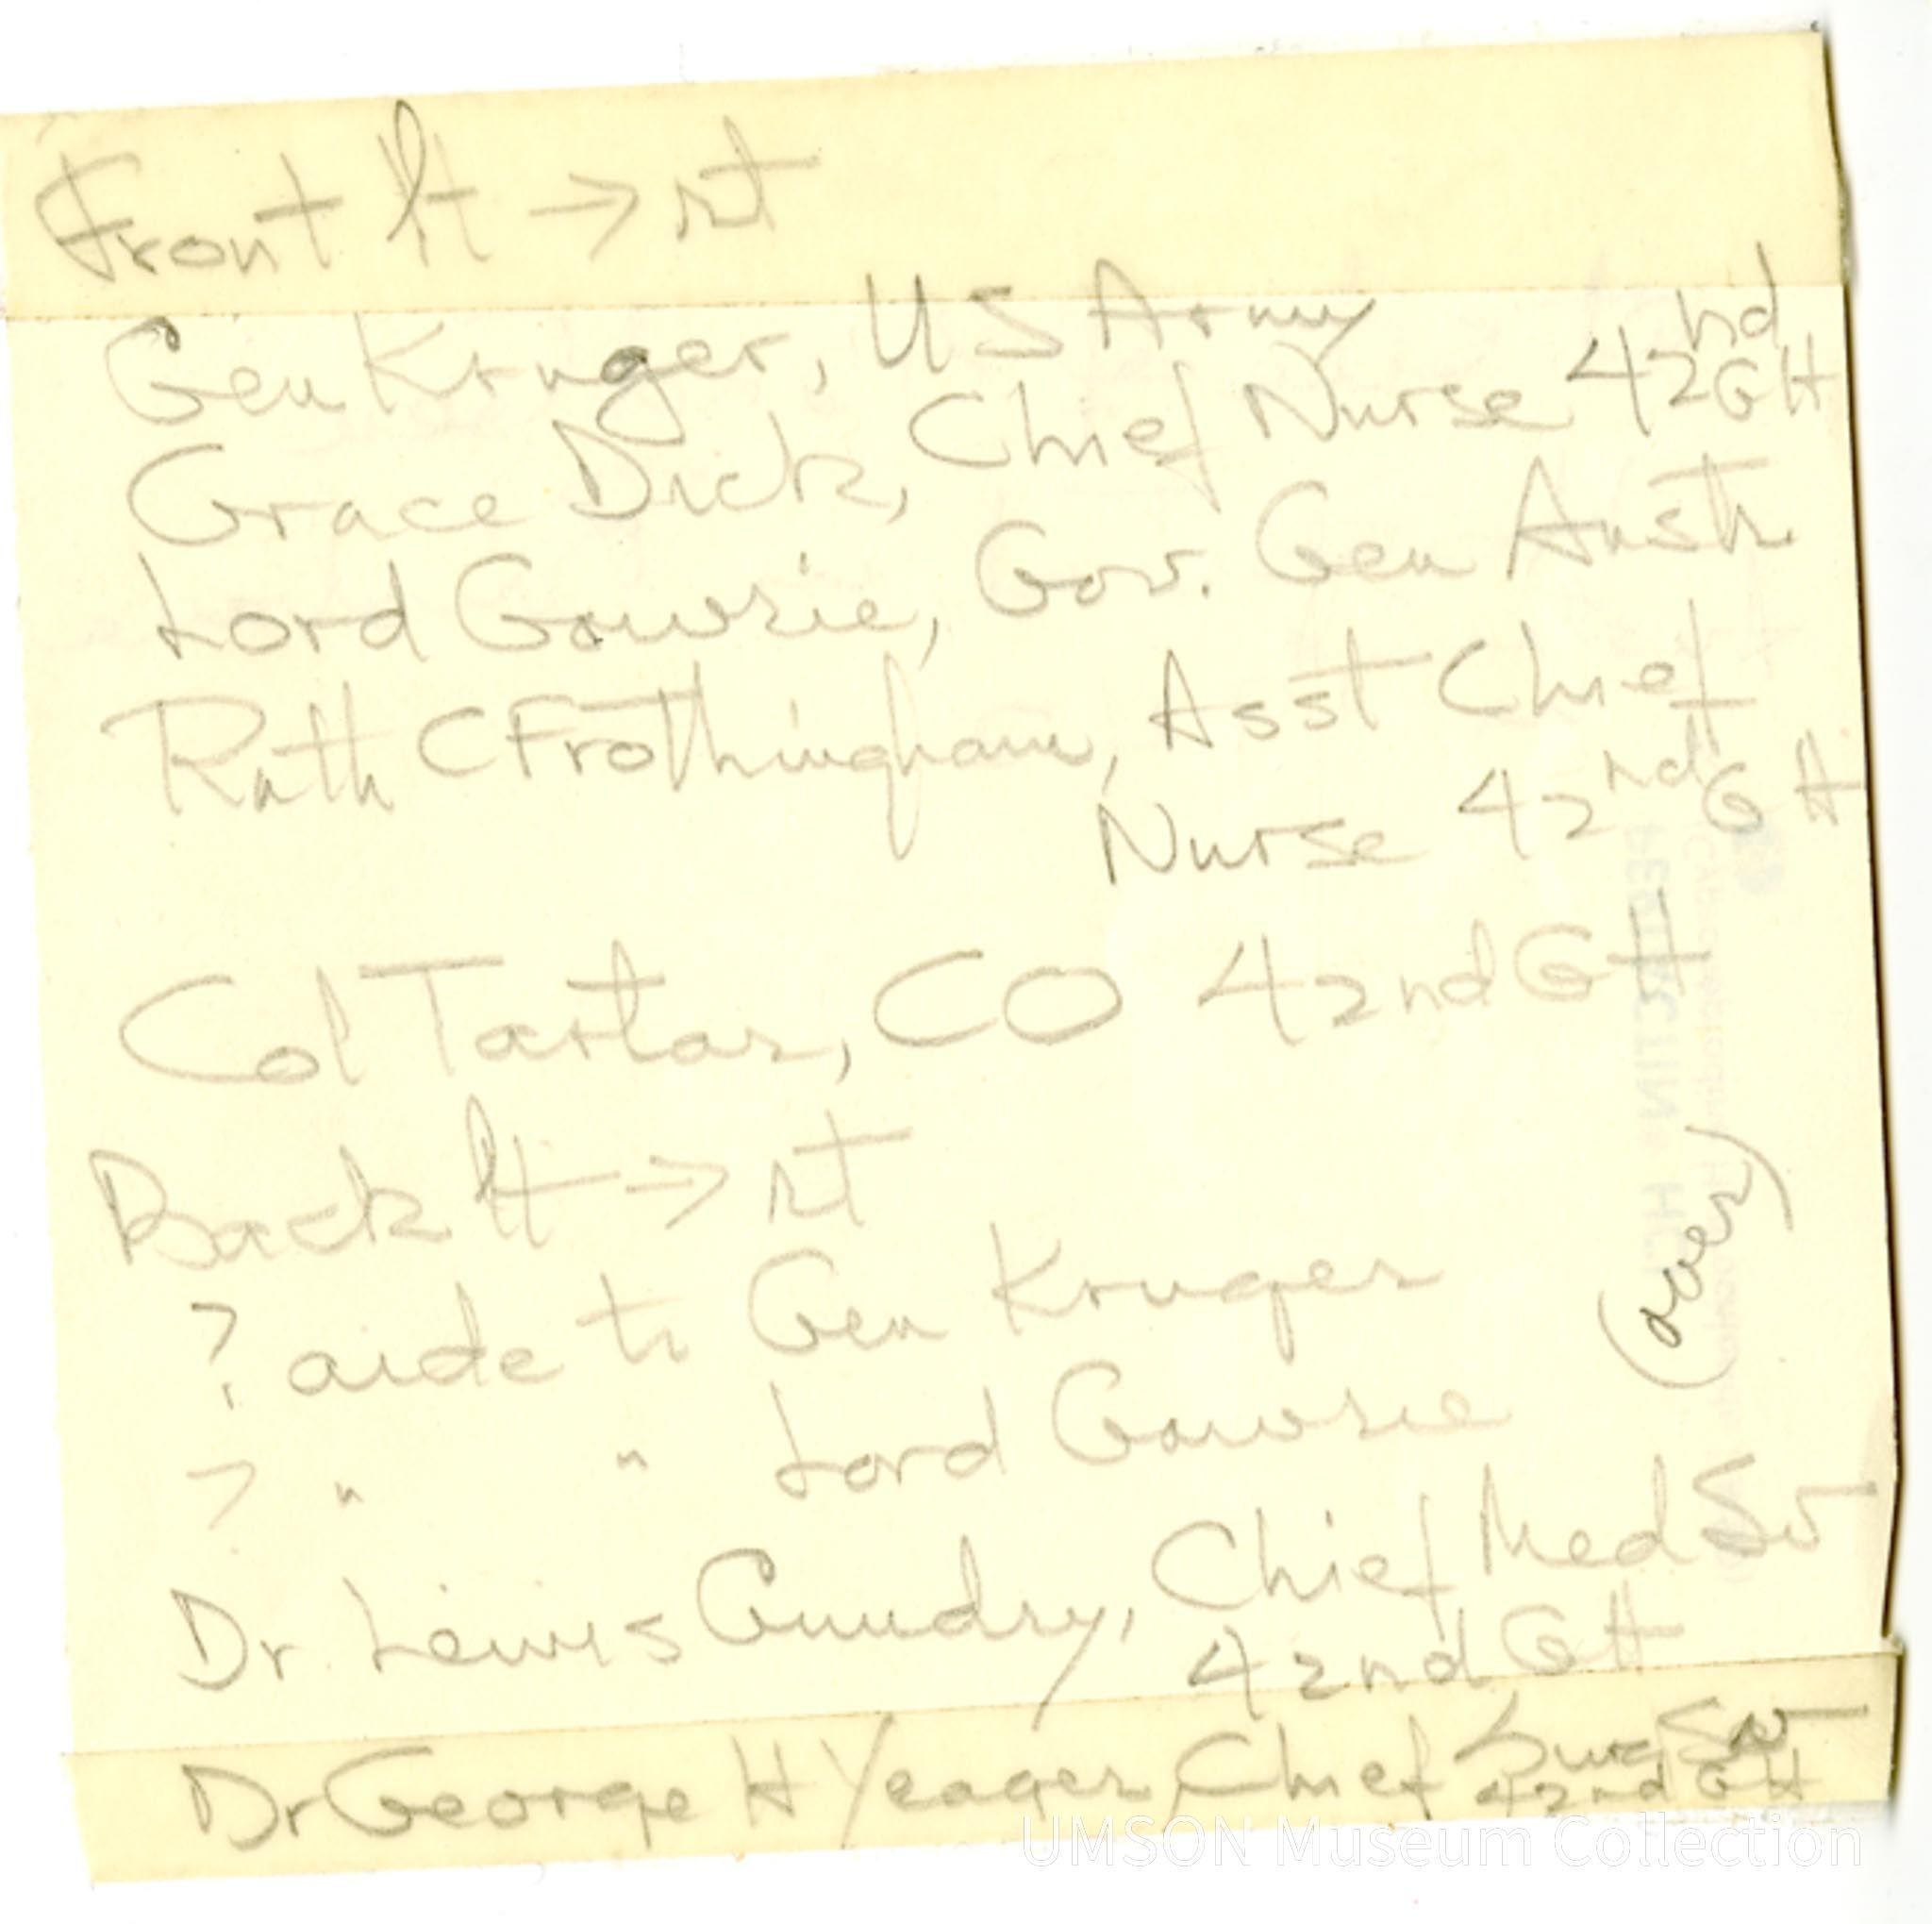 Front lt → rt
Gen Kruger, US Army
Grace Dick, Chief Nurse 42nd GH
Lord Gowrie, Gov. Gen Austr
Ruth C Frothingham, Asst Chief
Nurse 42nd GH
Col Tartar, CO 42nd GH
Back lt → rt
? aide to Gen Kruger
? " " Lord Gowrie
(over)
Dr. Lewis Gundry, Chief Med Sv
42nd GH
Dr George H Yeager, Chief Surg Sv
42nd GH
UMSON Museum Collection